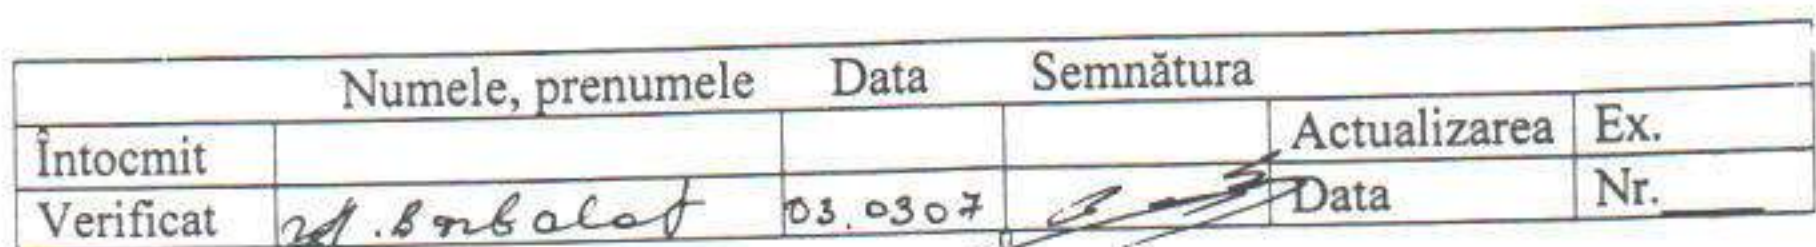 Numele, prenumele Data Semnătura
Întocmit Actualizarea Ex.
Verificat 03.0307 Data Nr.